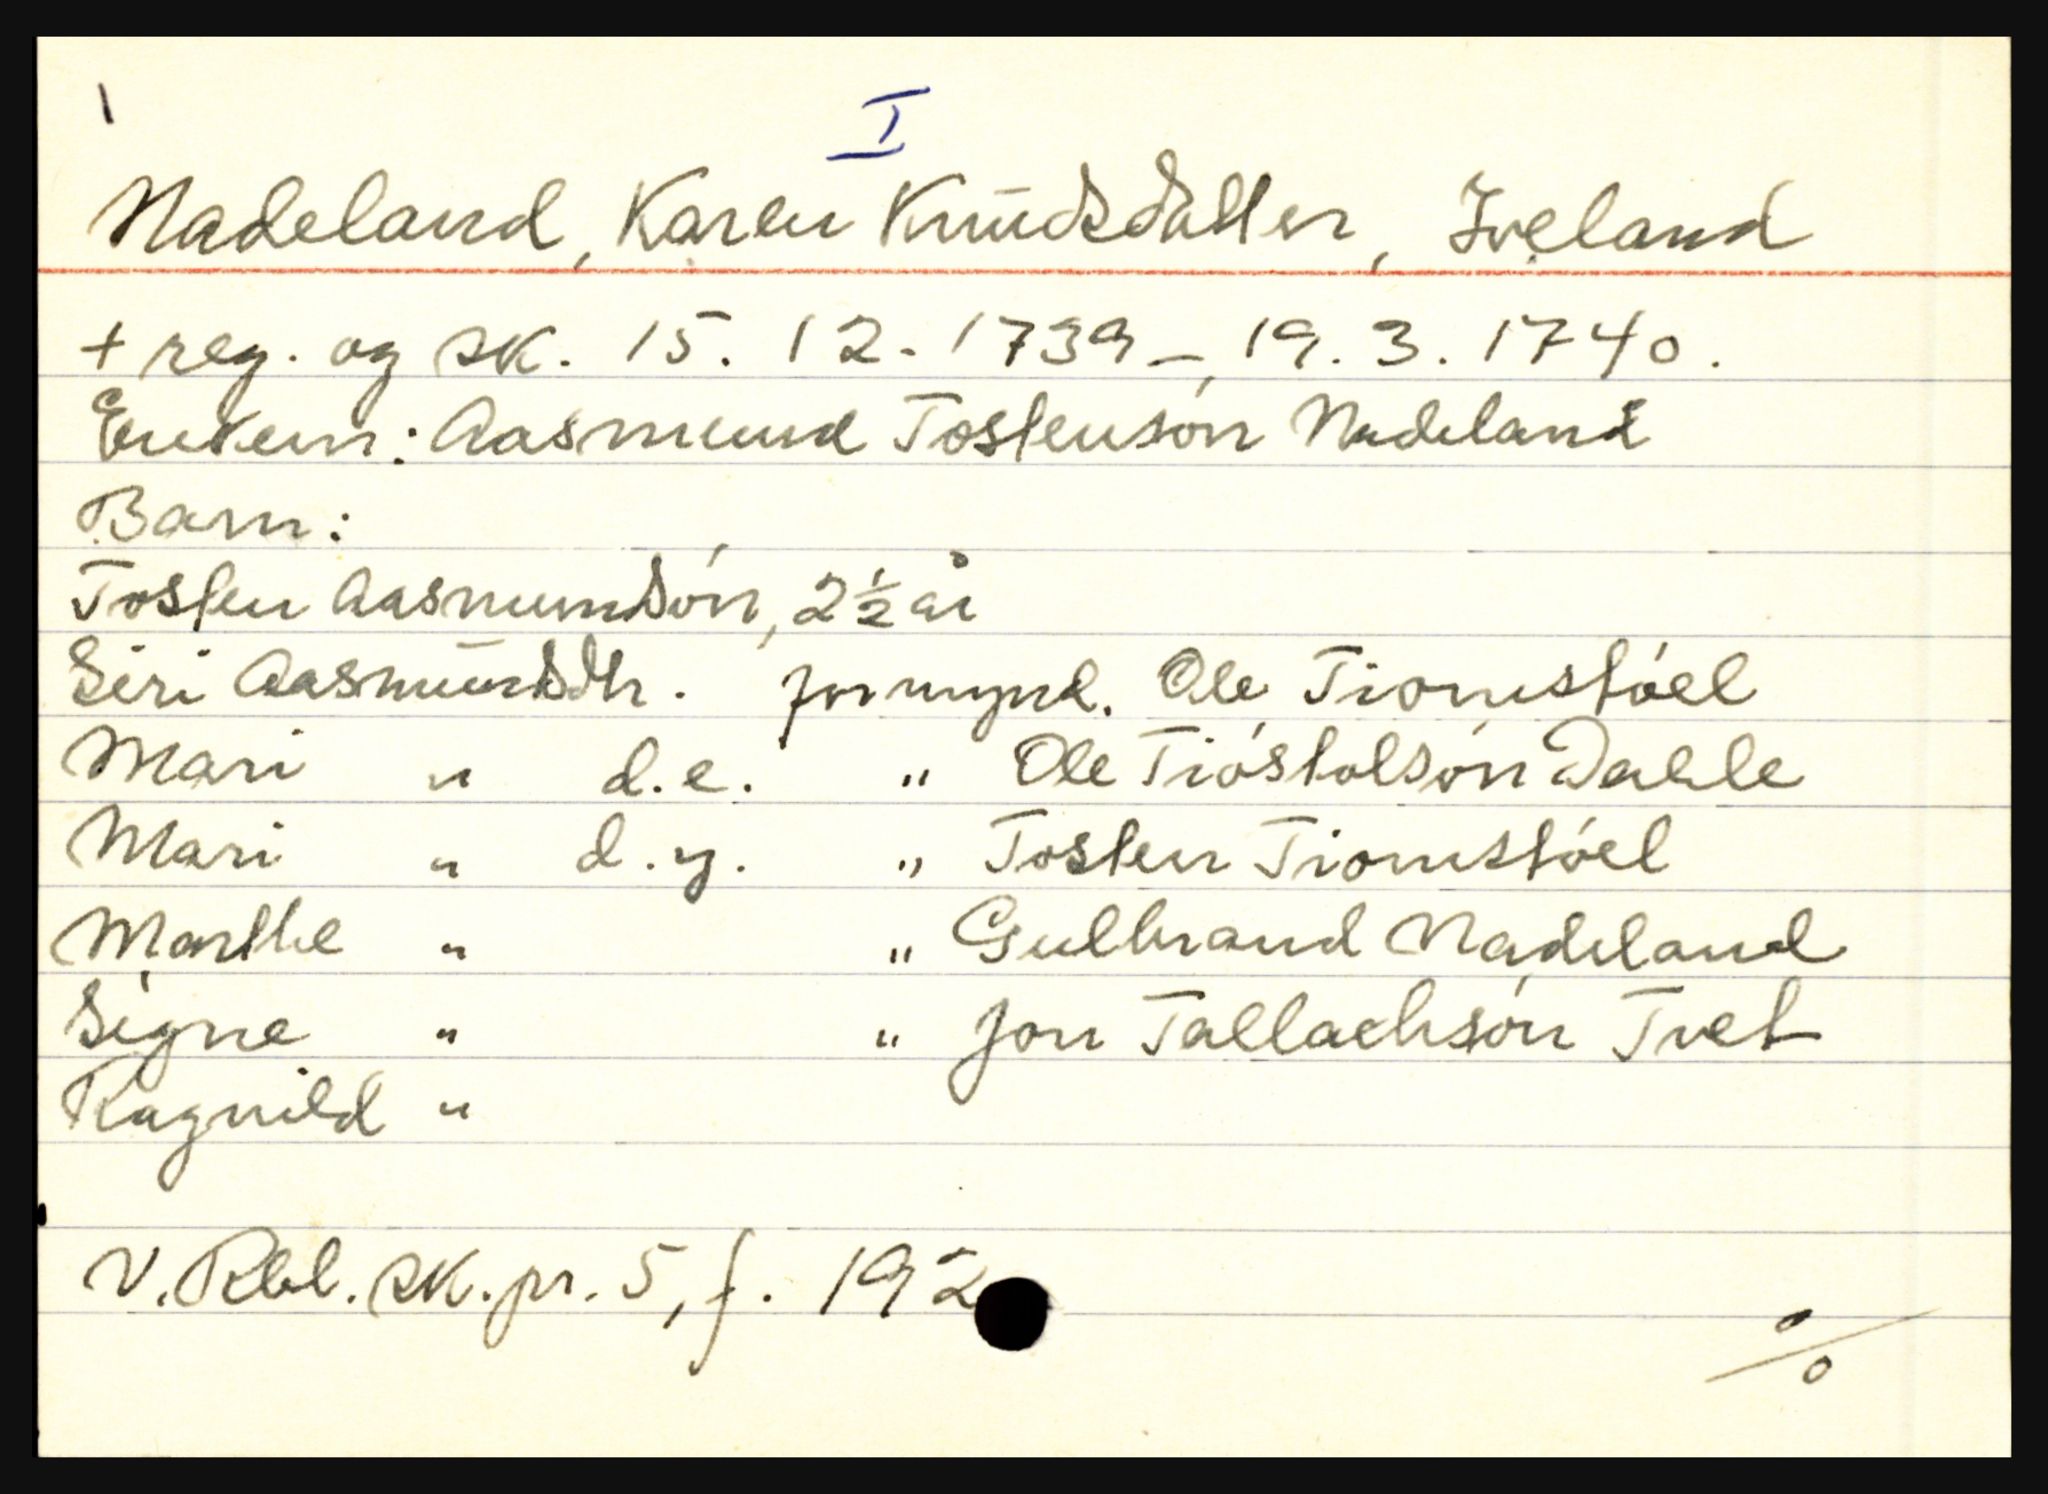 I
Nadeland, Karen Knudsdatter, Iveland
+ reg. og sk. 15. 12. 1739 – 19. 3. 1740.
Enkem: Aasmund Tostensón Nadeland
Barn:
Tosten Aasmundsón, 2½ år
Siri Aasmundsdtr. formynd. Ole Tiomstóel
Mari " d.e. " Ole Tióstolsón Dahle
Mari " d.y. " Tosten Tiomstóel
Marthe " " Gulbrand Nadeland
Signe " " Jon Tallachsón Tvet
Ragnild "
V. Rbl. sk. pr. 5, f. 192
%